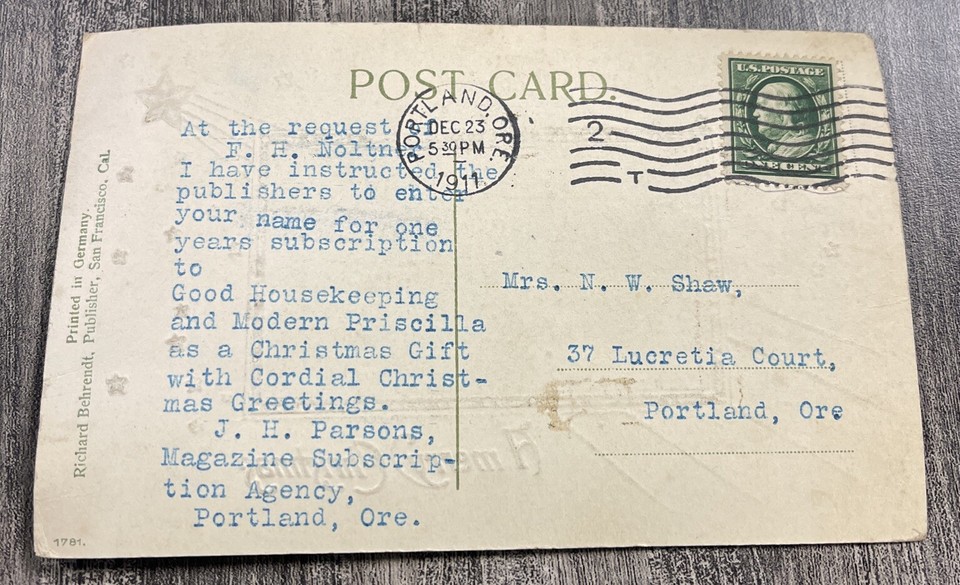 POST CARD.
PORTLAND, ORE.
DEC 23
5 30 PM
1911
2
T
U.S. POSTAGE
ONE CENT
At the request
F. H. Noltne
I have instructed the
publishers to enter
your name for one
years subscription
to
Good Housekeeping
and Modern Priscilla
as a Christmas Gift
with Cordial Christ-
mas Greetings.
J. H. Parsons,
Magazine Subscrip-
tion Agency,
Portland, Ore.
Mrs. N. W. Shaw,
37 Lucretia Court,
Portland, Ore
Printed in Germany.
Richard Behrendt, Publisher, San Francisco, Cal.
1781.